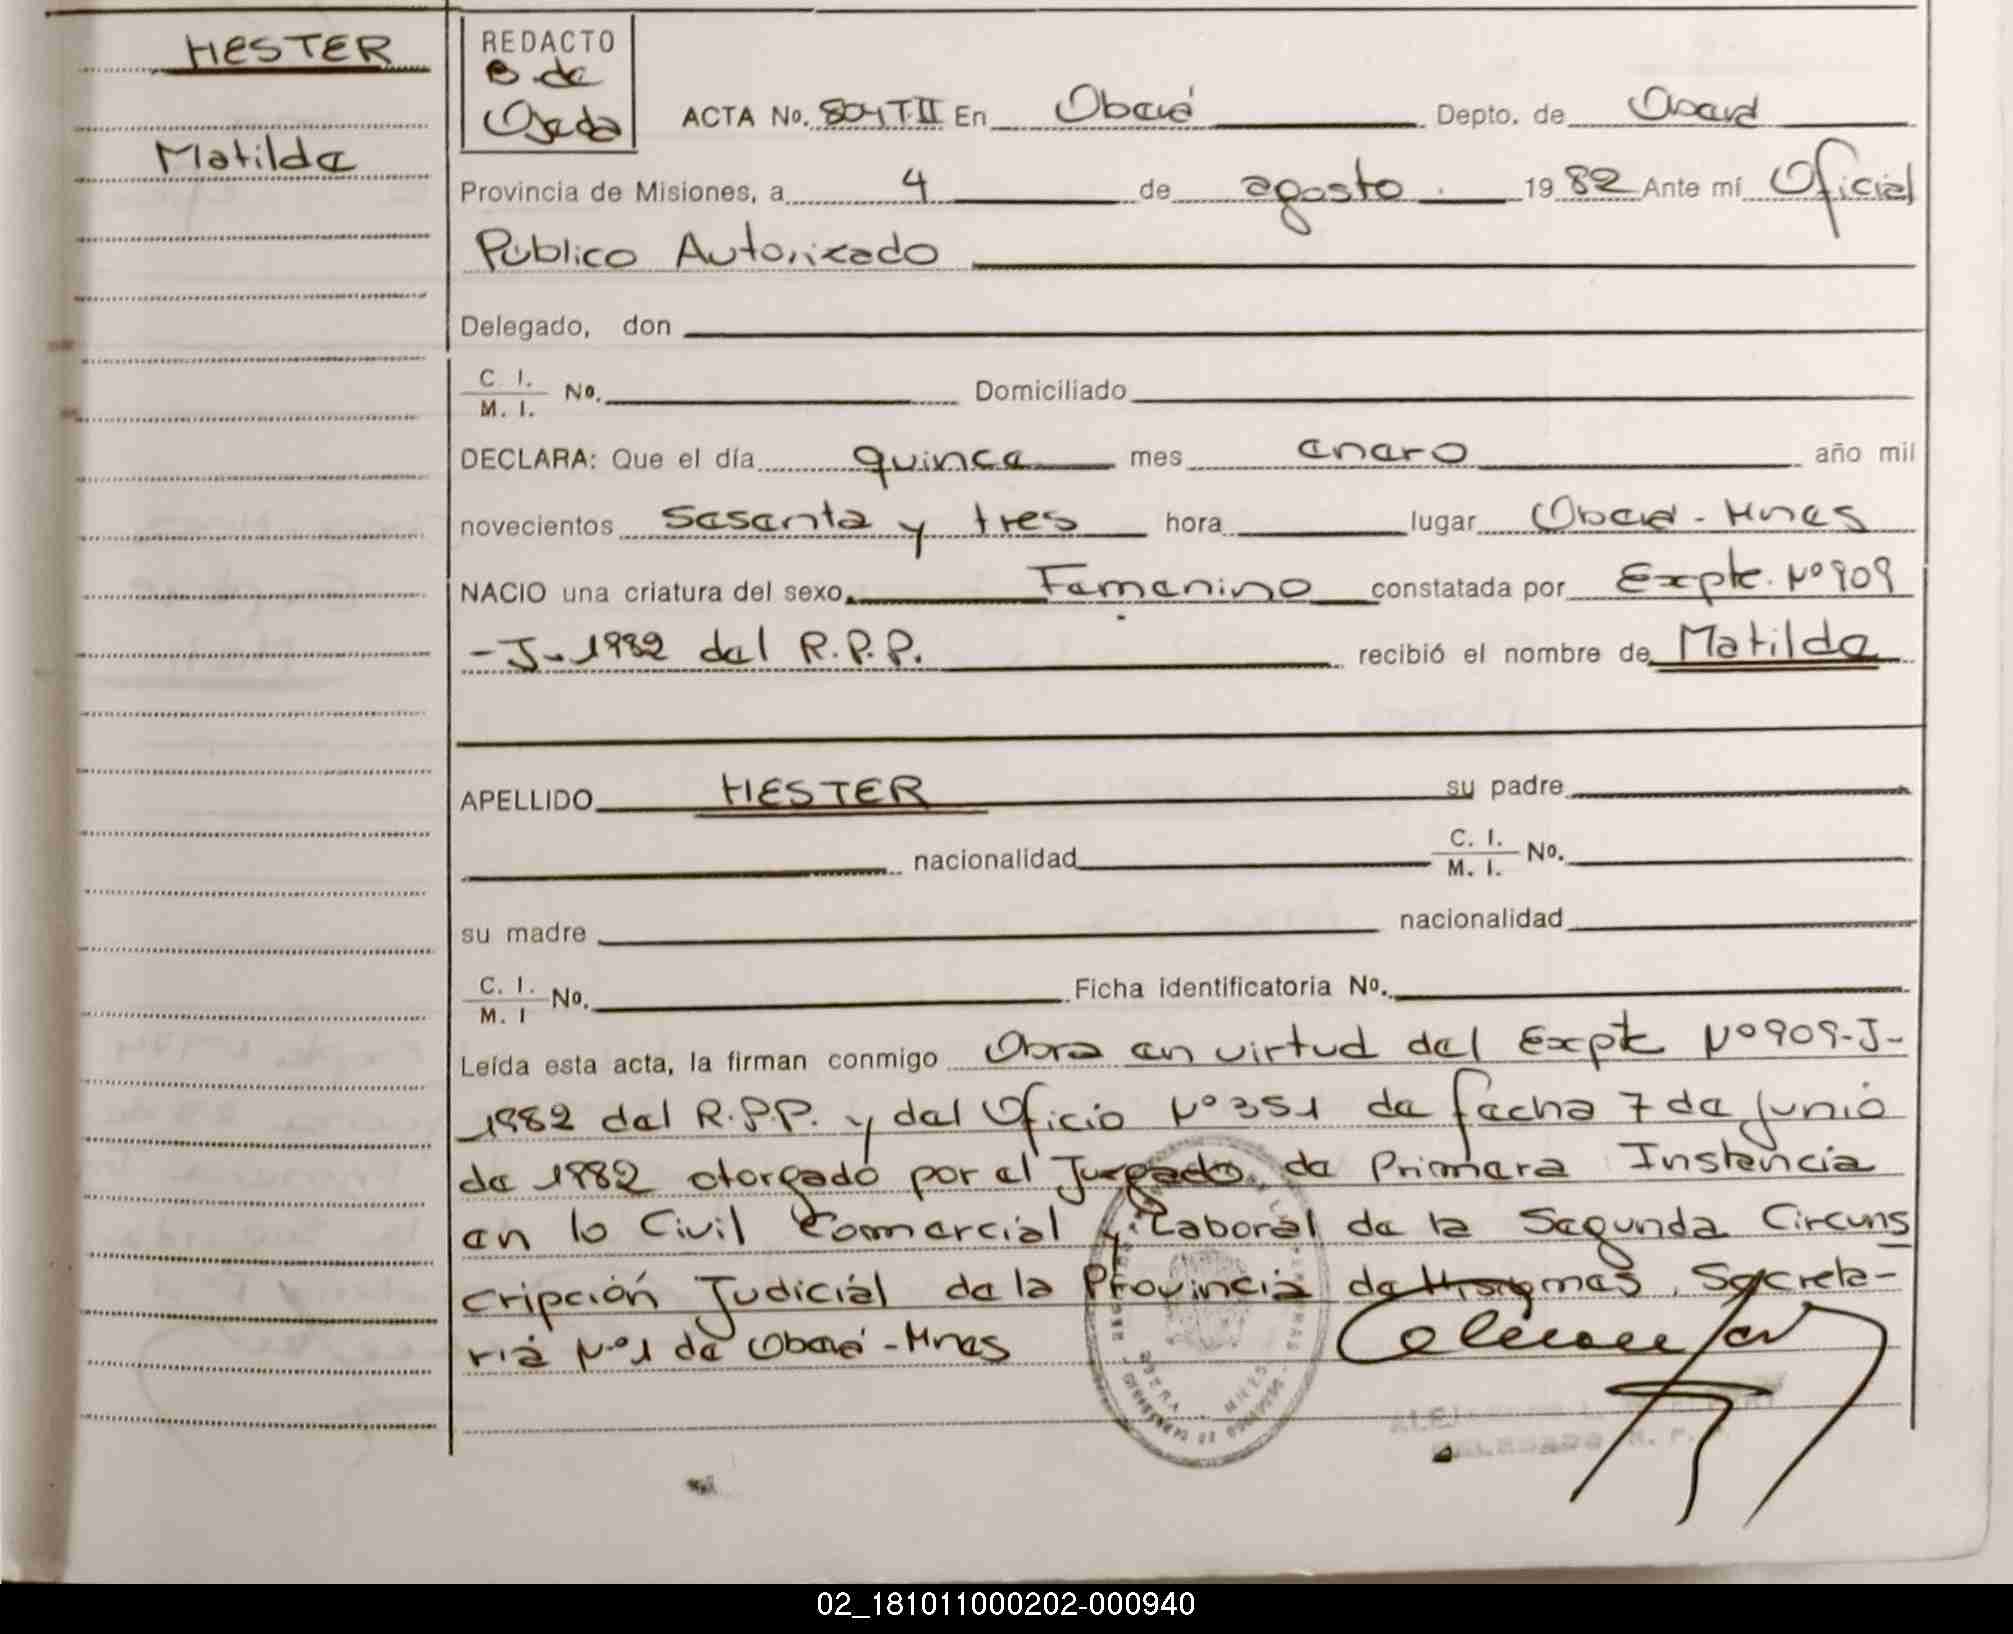 HESTER
Matilda
REDACTO
B. de
Ojeda
ACTA No. 804 T II En Oberá Depto. de Oberá
Provincia de Misiones, a 4 de agosto 1982 Ante mí Oficial
Público Autorizado
Delegado, don
C I. / M. I. No. Domiciliado
DECLARA: Que el día quince mes enero año mil
novecientos sesenta y tres hora lugar Oberá - Mnes
NACIO una criatura del sexo Femenino constatada por Expte. Nº 909
-J-1982 del R.P.P. recibió el nombre de Matilda
APELLIDO HESTER su padre
nacionalidad C. I. / M. I. No.
su madre nacionalidad
C. I. / M. I No. Ficha identificatoria No.
Leída esta acta, la firman conmigo Obra en virtud del Expte Nº 909-J-
1982 del R.P.P. y del Oficio Nº 351 de fecha 7 de junio
de 1982 otorgado por el Juzgado de Primera Instancia
en lo Civil Comercial y Laboral de la Segunda Circuns
cripción Judicial de la Provincia de Misiones, Secreta-
ría Nº 1 de Oberá - Mnes
02_181011000202-000940